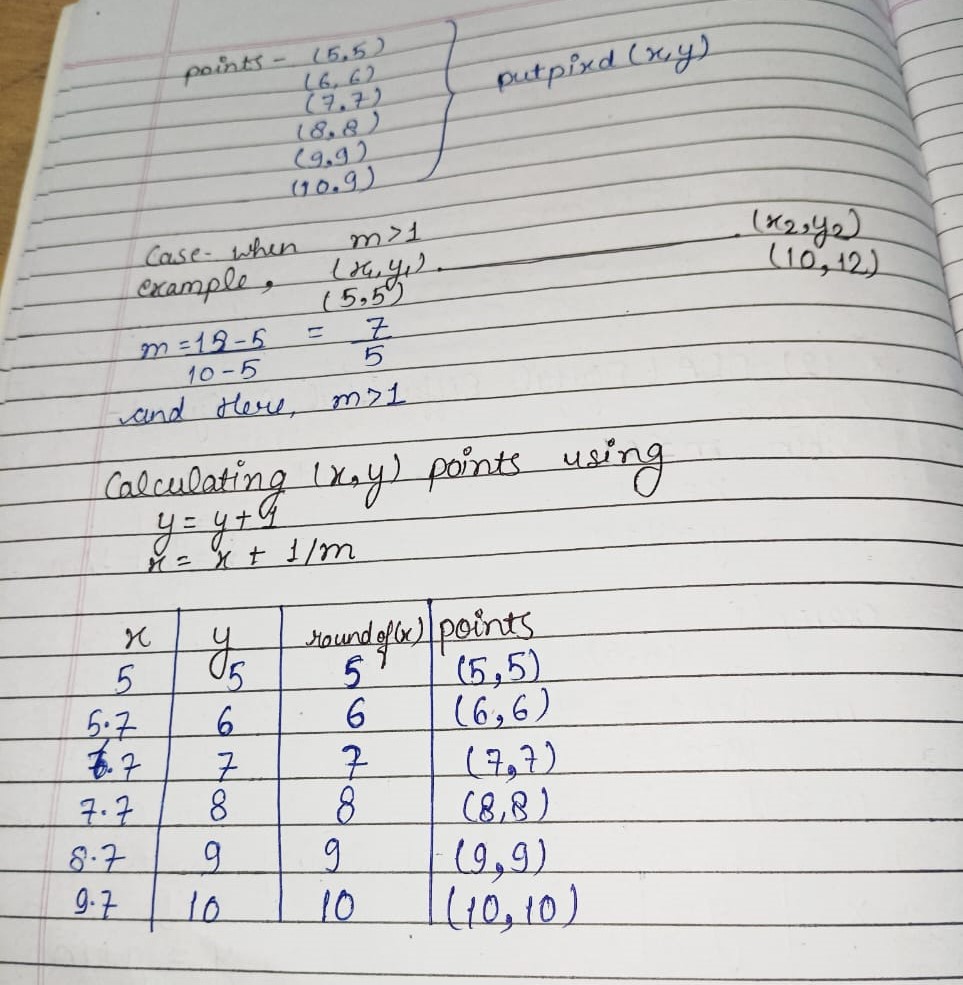 points - (5,5)
(6,6)
(7,7)
(8,8)
(9,9)
(10,9)
putpixel (x,y)
Case- when m>1
example, (x1,y1) (x2,y2)
(5,5) (10,12)
m = 12-5 = 7
10-5 5
and Here, m>1
Calculating (x,y) points using
y = y+1
x = x + 1/m
x y round of(x) points
5 5 5 (5,5)
5.7 6 6 (6,6)
6.7 7 7 (7,7)
7.7 8 8 (8,8)
8.7 9 9 (9,9)
9.7 10 10 (10,10)